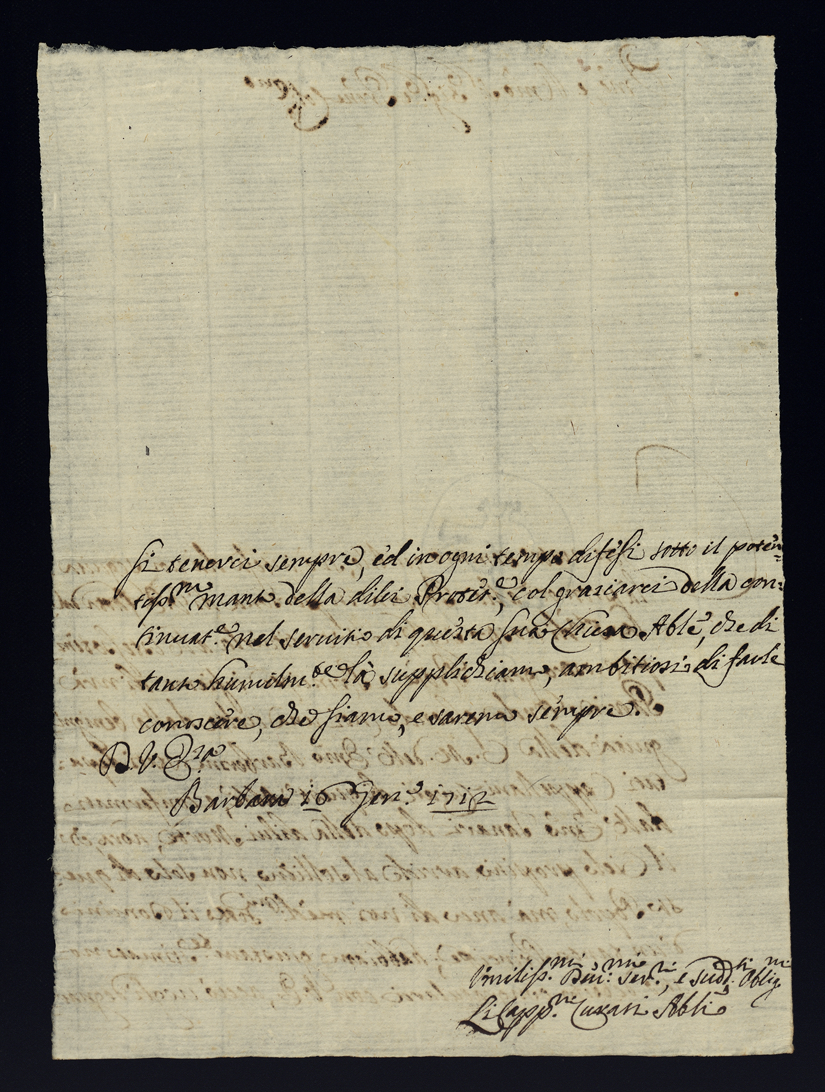 si tenerci sempre, ed in ogni tempo difesi sotto il poten=
tiss.mo manto della dilei Protet.e, col graziarci della con=
tinuat.e nel servitio di questa sua Chiesa Able, che di
tanto humilm.te la supplichiamo, ambitiosi di farle
conoscere, che siamo, e saremo sempre.
D V. Em.a
Barbano 16 Gen.o 1712
Humiliss.mi Deu.mi ser.ri, e sudd.ti Oblig.mi
Li Capp.ni Curati Abli